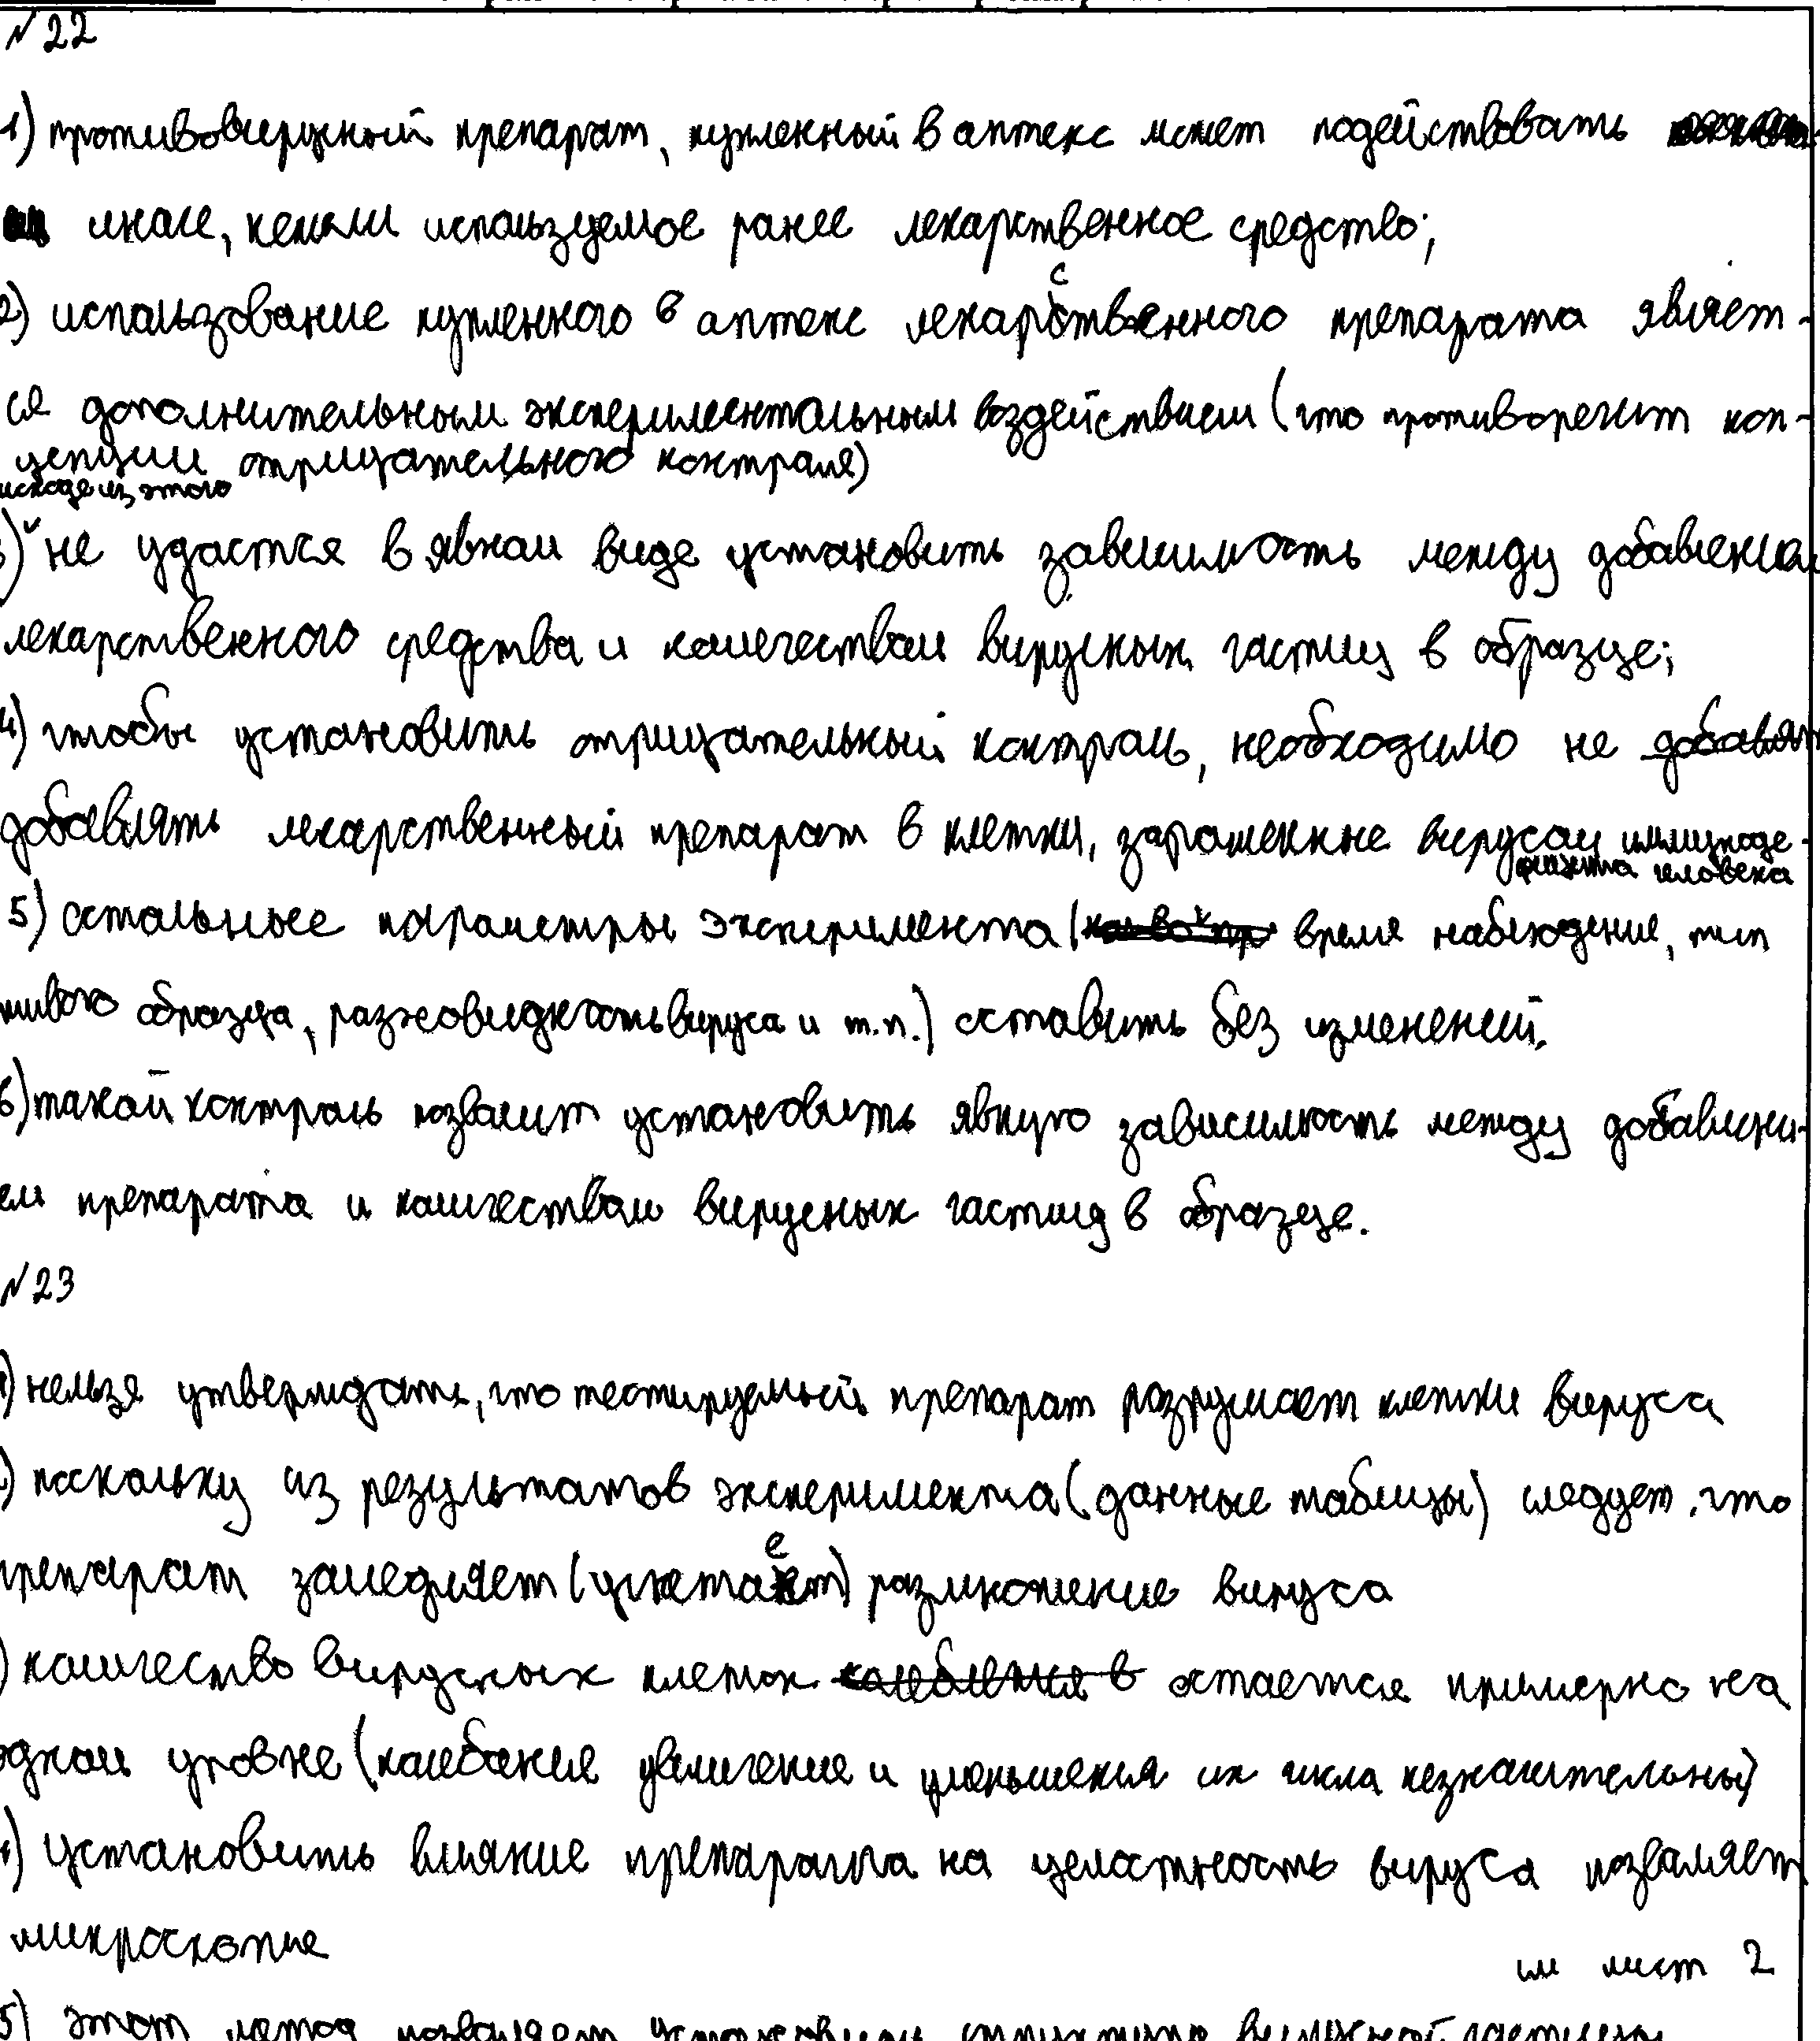 №22
1) противовирусный препарат, купленный в аптеке может подействовать
иначе, нежели используемое ранее лекарственное средство;
2) использование купленного в аптеке лекарственного препарата являет-
ся дополнительным экспериментальным воздействием (что противоречит кон-
цепции отрицательного контроля)
исходя из этого
3) не удастся в явном виде установить зависимость между добавление
лекарственного средства и количеством вирусных частиц в образце;
4) чтобы установить отрицательный контроль, необходимо не добавлят
добавлять лекарственный препарат в клетки, зараженные вирусом иммуноде-
фицита человека
5) остальные параметры эксперимента ( время наблюдение, тип
живого образца, разновидность вируса и т.п.) оставить без изменений.
6) такой контроль позволит установить явную зависимость между добавлени-
ем препарата и количеством вирусных частиц в образце.
№23
1) нельзя утверждать, что тестируемый препарат разрушает клетки вируса
2) поскольку из результатов эксперимента (данные таблицы) следует, что
препарат замедляет (угнетает) размножение вируса
) количество вирусных клеток остается примерно на
одном уровне (колебания увеличение и уменьшения их числа незначительны)
4) установить влияние препарата на целостность вируса позволяет
микроскопия
см лист 2
5) этот метод позволяет установить структуру вирусной частицы